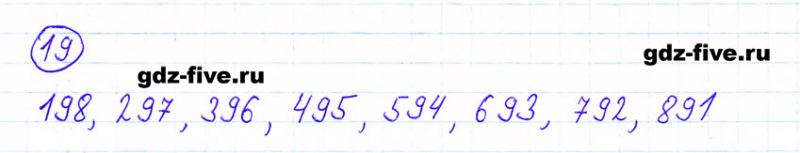 19
gdz-five.ru
gdz-five.ru
198, 297, 396, 495, 594, 693, 792, 891